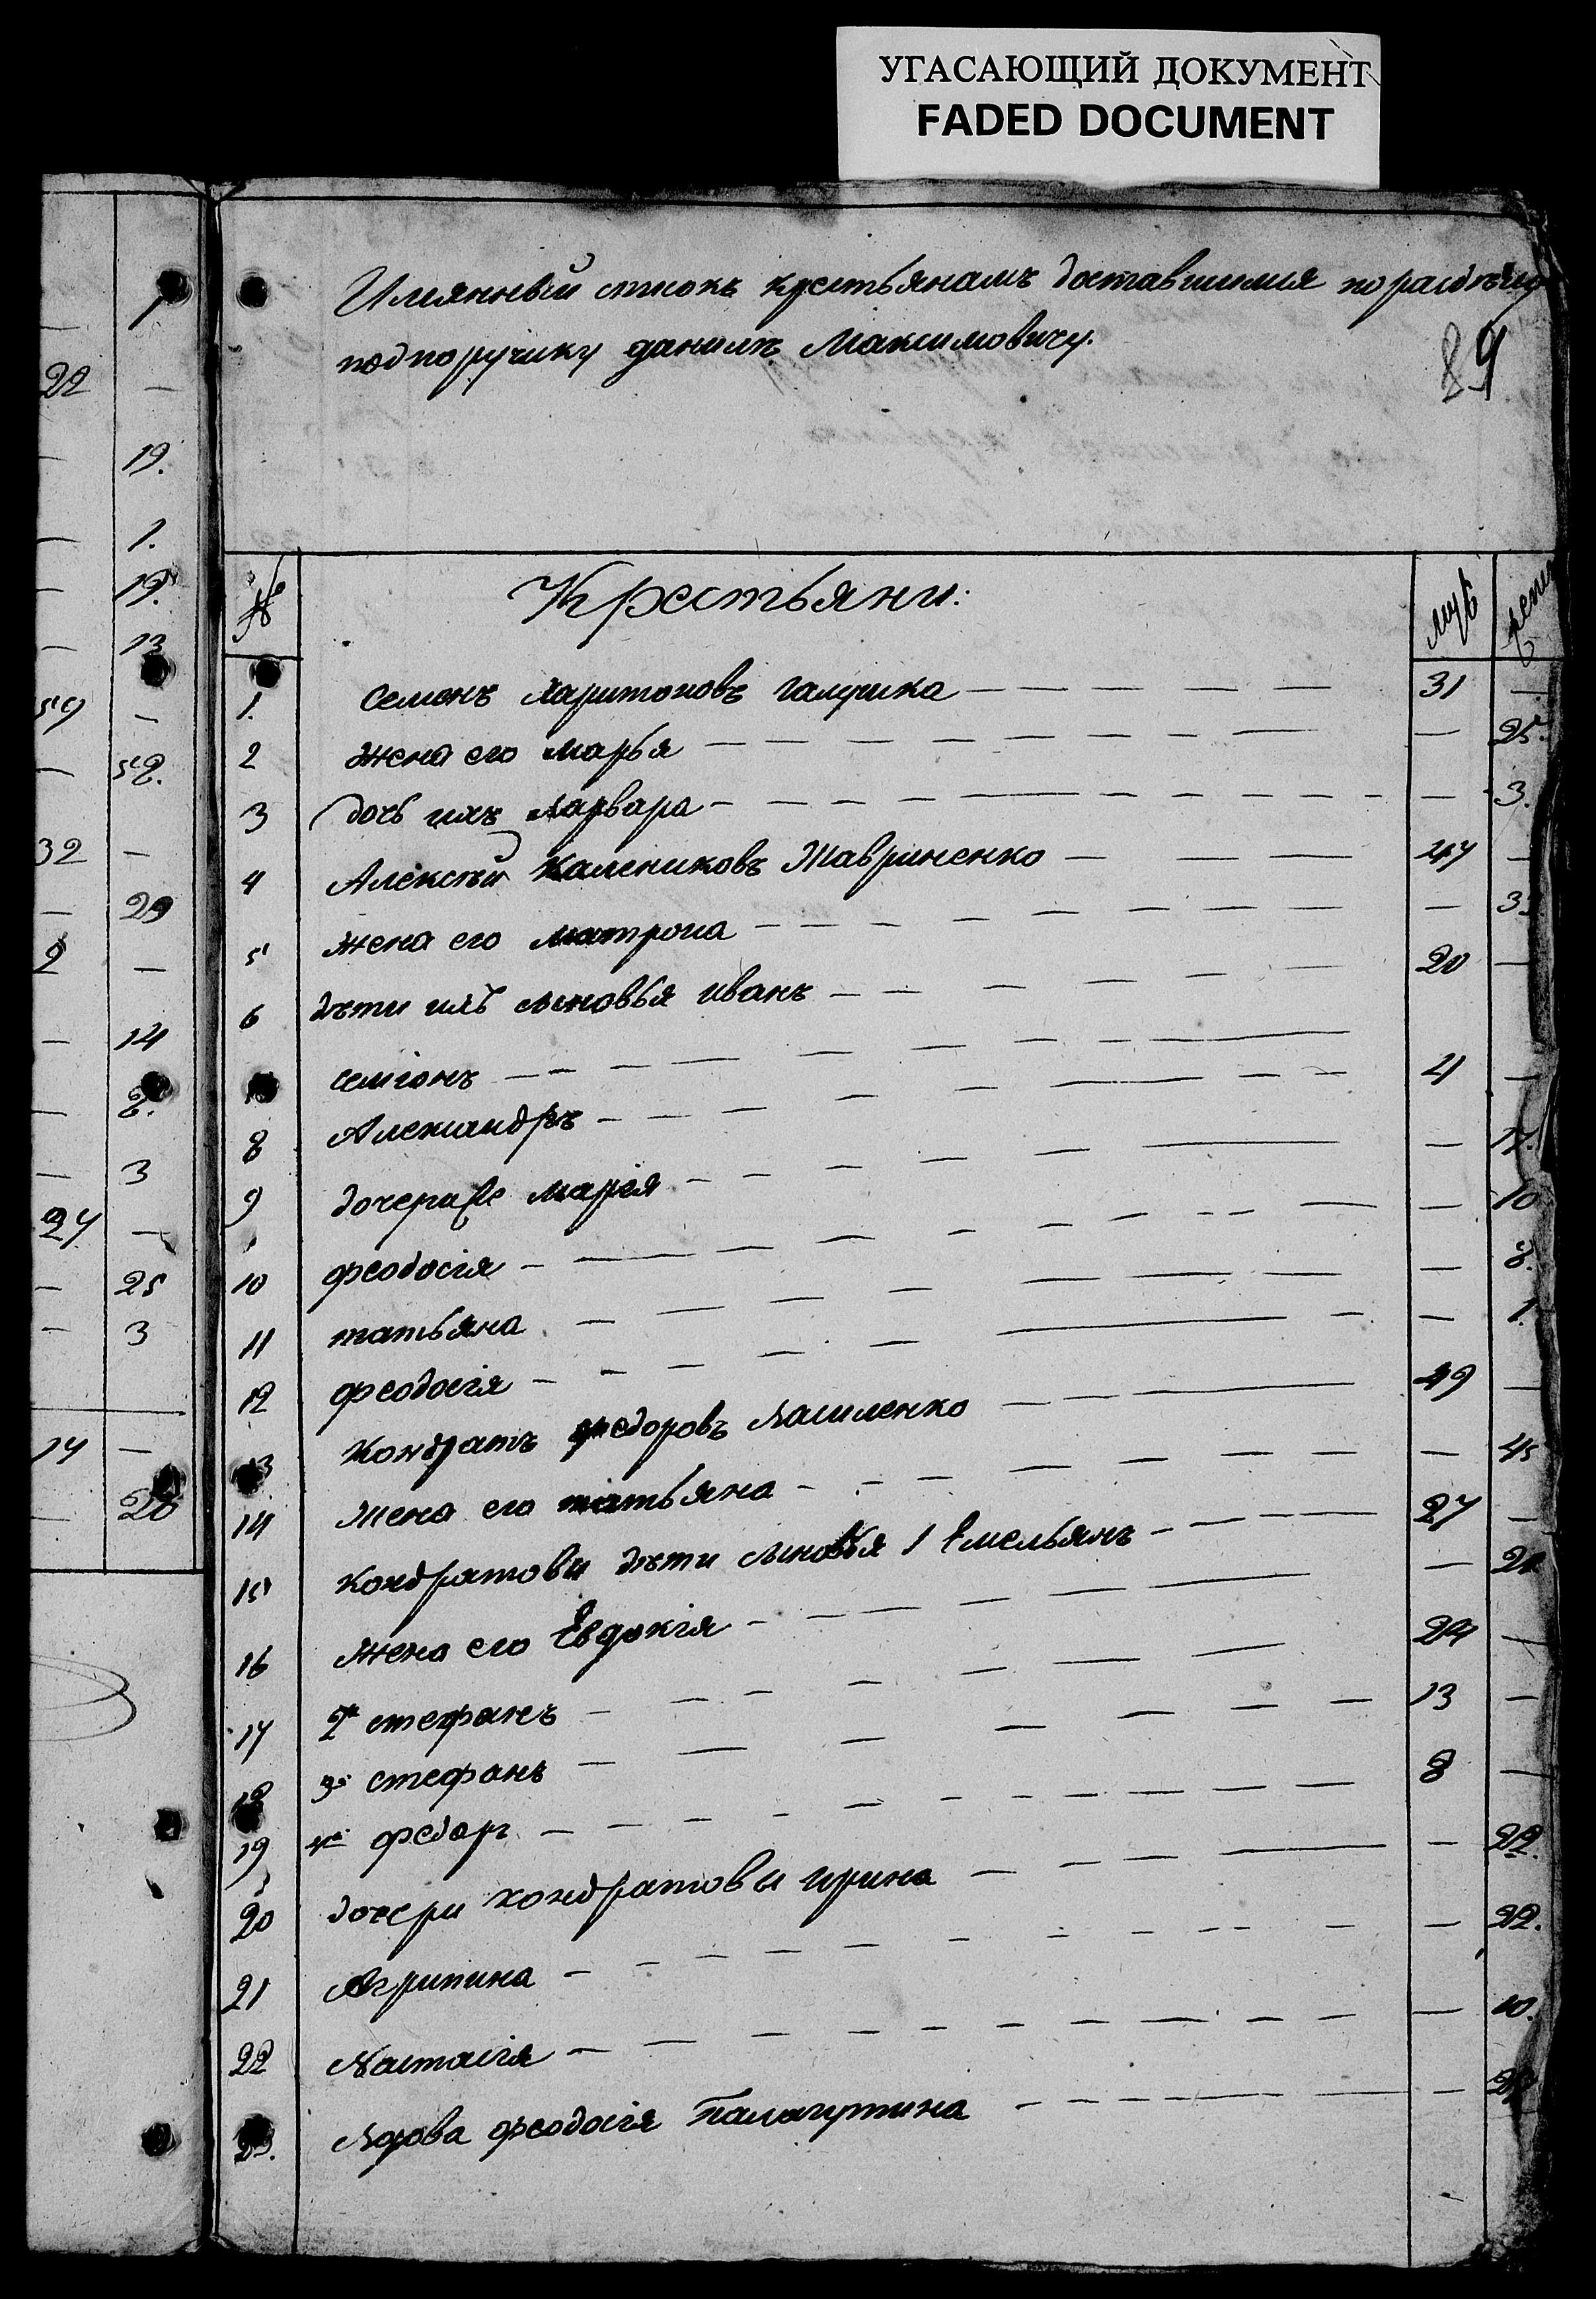 УГАСАЮЩИЙ ДОКУМЕНТ
FADED DOCUMENT
Имянный списокъ крестьянамъ доставшимся по разделу
подпоручику данилѣ Максимовичу.
89
№ Крестьяни: муж женс
1. Семенъ Харитоновъ галушка — 31 —
2 жена его марья — — 25.
3 дочь ихъ варвара — — 3.
4 Алексѣй Калениковъ Тавриненко — 47 —
5 жена его матрона — —
6 дѣти ихъ сыновья иванъ — 20 —
семіонъ —
8 Александръ — 4 —
9 дочера ѣе марія — — 17.
10 феодосія — — 10
11 татьяна — — 8.
12 феодосія — — 1.
13 Кондратъ федоровъ василенко — 49 —
14 жена его татьяна — — 45
15 кондратови дѣти сыновья 1 Емельянъ — 27 —
16 жена его Евдокія — —
17 2й стефанъ — 24 —
18 3й стефанъ — 13 —
19 4й федоръ — 8 —
20 дочери кондратовы ирина — — 22.
21 Агрипина — — 22.
22 Настасія — — 10.
23. Вдова феодосія Палагутина — —
22 —
— 19.
— 1.
— 19.
— 13
59 —
— 58.
32 —
— 29
2 —
— 14
— 8.
— 3
27 —
— 25
— 3
14 —
— 20